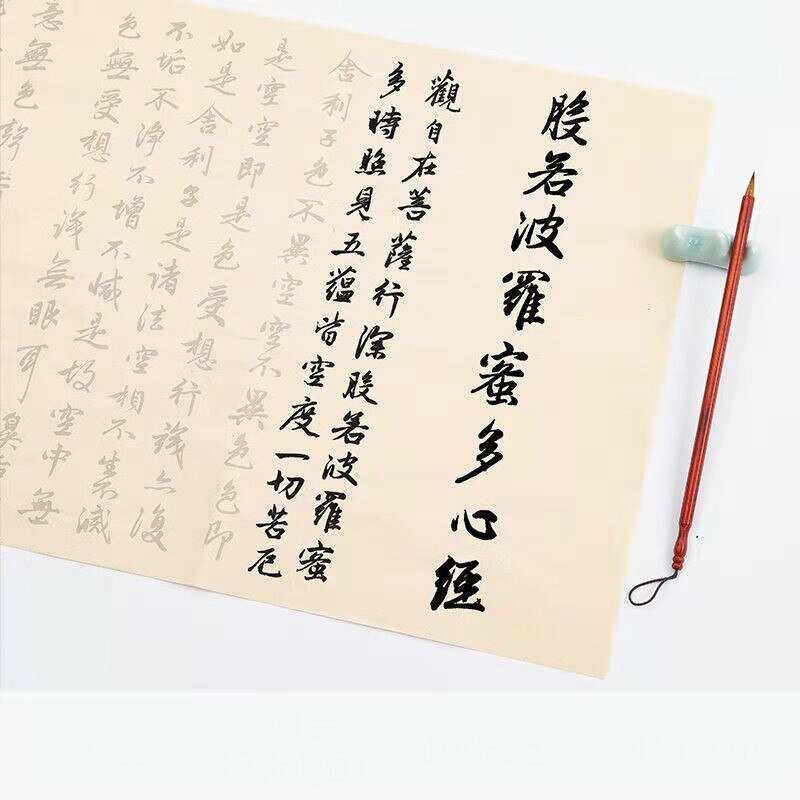 般若波羅蜜多心經
觀自在菩薩行深般若波羅蜜
多時照見五蘊皆空度一切苦厄
舍利子色不異空空不異色色即
是空空即是色受想行識亦復
如是舍利子是諸法空相不生不滅
不垢不淨不增不減是故空中無
色無受想行識無眼耳鼻舌
意無色聲
心经
5遍装
(2张1遍)
10张1包
34*69cm